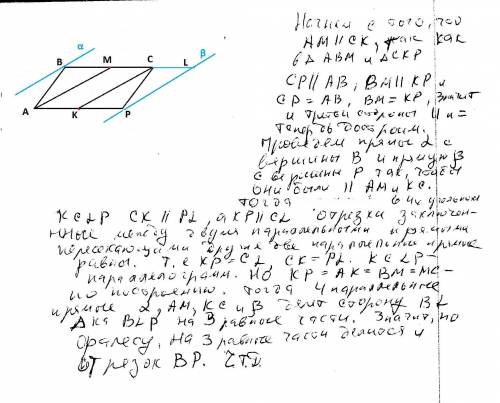 α
B M C L β
A K P
Начнём с того, что
AM || CK, так как
в Δ ABM и Δ CKP
CP || AB, BM || KP и
CP = AB, BM = KP, значит
и третьи стороны || и =
Теперь достроим.
Проведём прямые α с
вершины B и прямую β
с вершины P так, чтобы
они были || AM и KC.
Тогда в 4х угольнике
KCLP CK || PL, а KP || CL отрезки заключен-
нные между двумя параллельными прямыми
пересекающими другие две параллельные прямые
равны. Т.е KP = CL CK = PL. KCLP-
параллелограмм. Но KP = AK = BM = MC-
по построению. Тогда 4 параллельные
прямые α, AM, KC и β делят сторону BL
Δ ка BLP на 3 равные части. Значит, по
Фалесу, на 3 равные части делится и
отрезок BP. Ч.Т.Д.